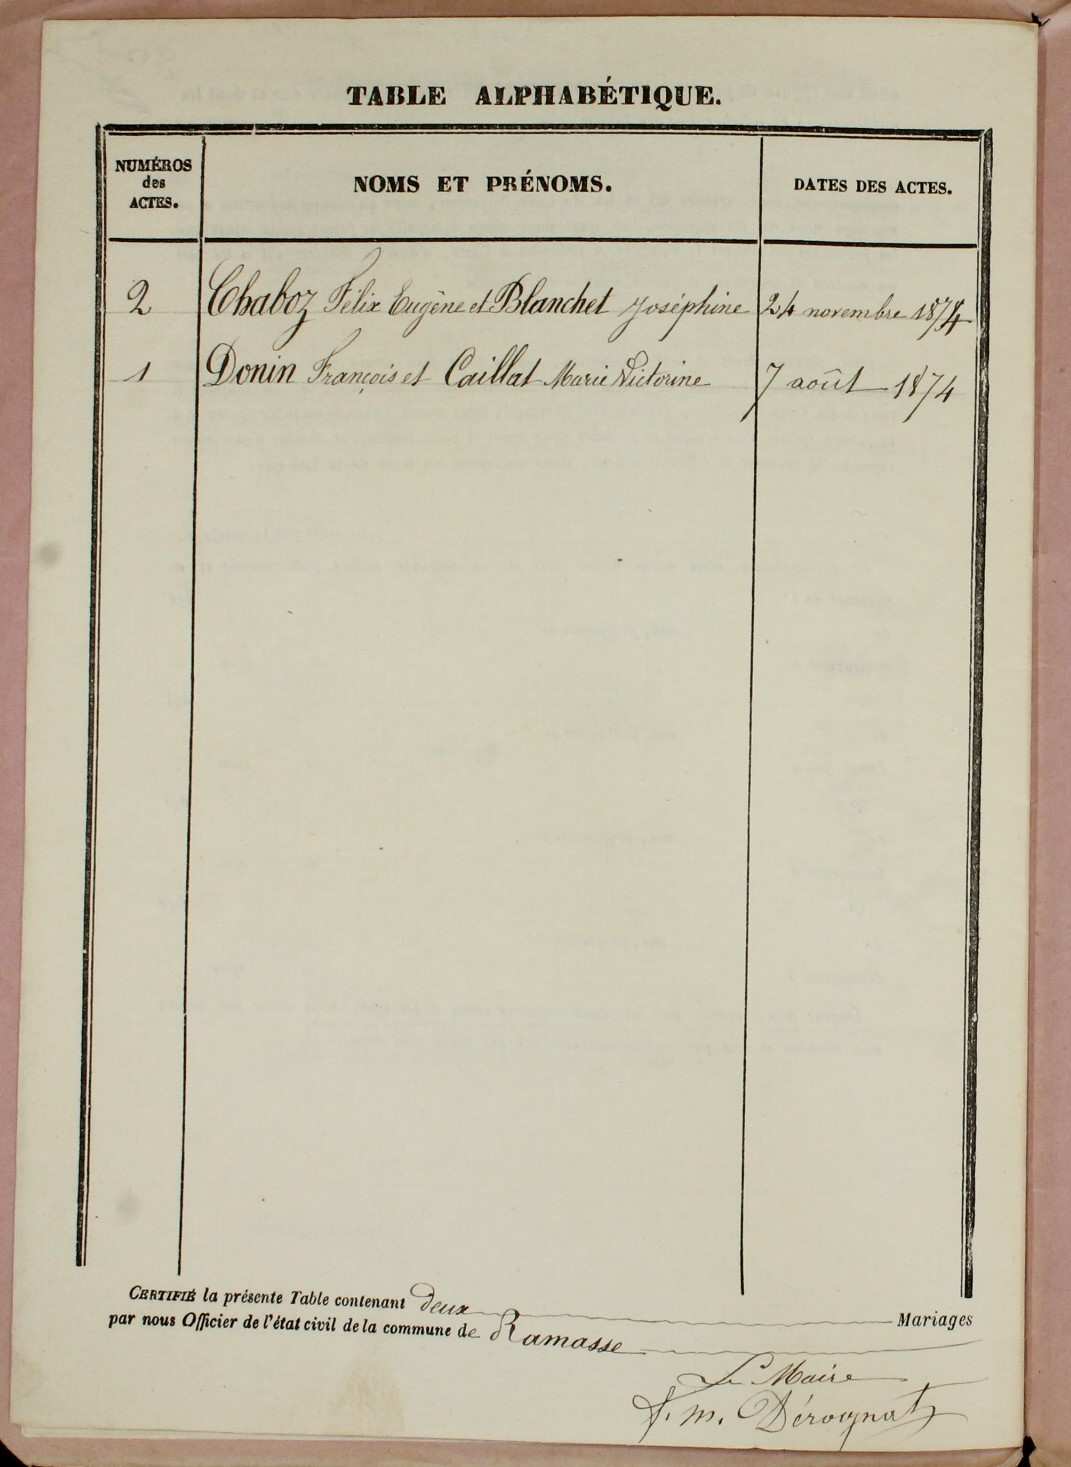 TABLE ALPHABÉTIQUE.
NUMÉROS
des
ACTES.
NOMS ET PRÉNOMS.
DATES DES ACTES.
2 Chaboz Félix Eugène et Blanchet Joséphine 24 novembre 1874
1 Donin François et Caillat Marie Victorine 7 août 1874
CERTIFIÉ la présente Table contenant deux Mariages
par nous Officier de l'état civil de la commune de Ramasse
Le Maire